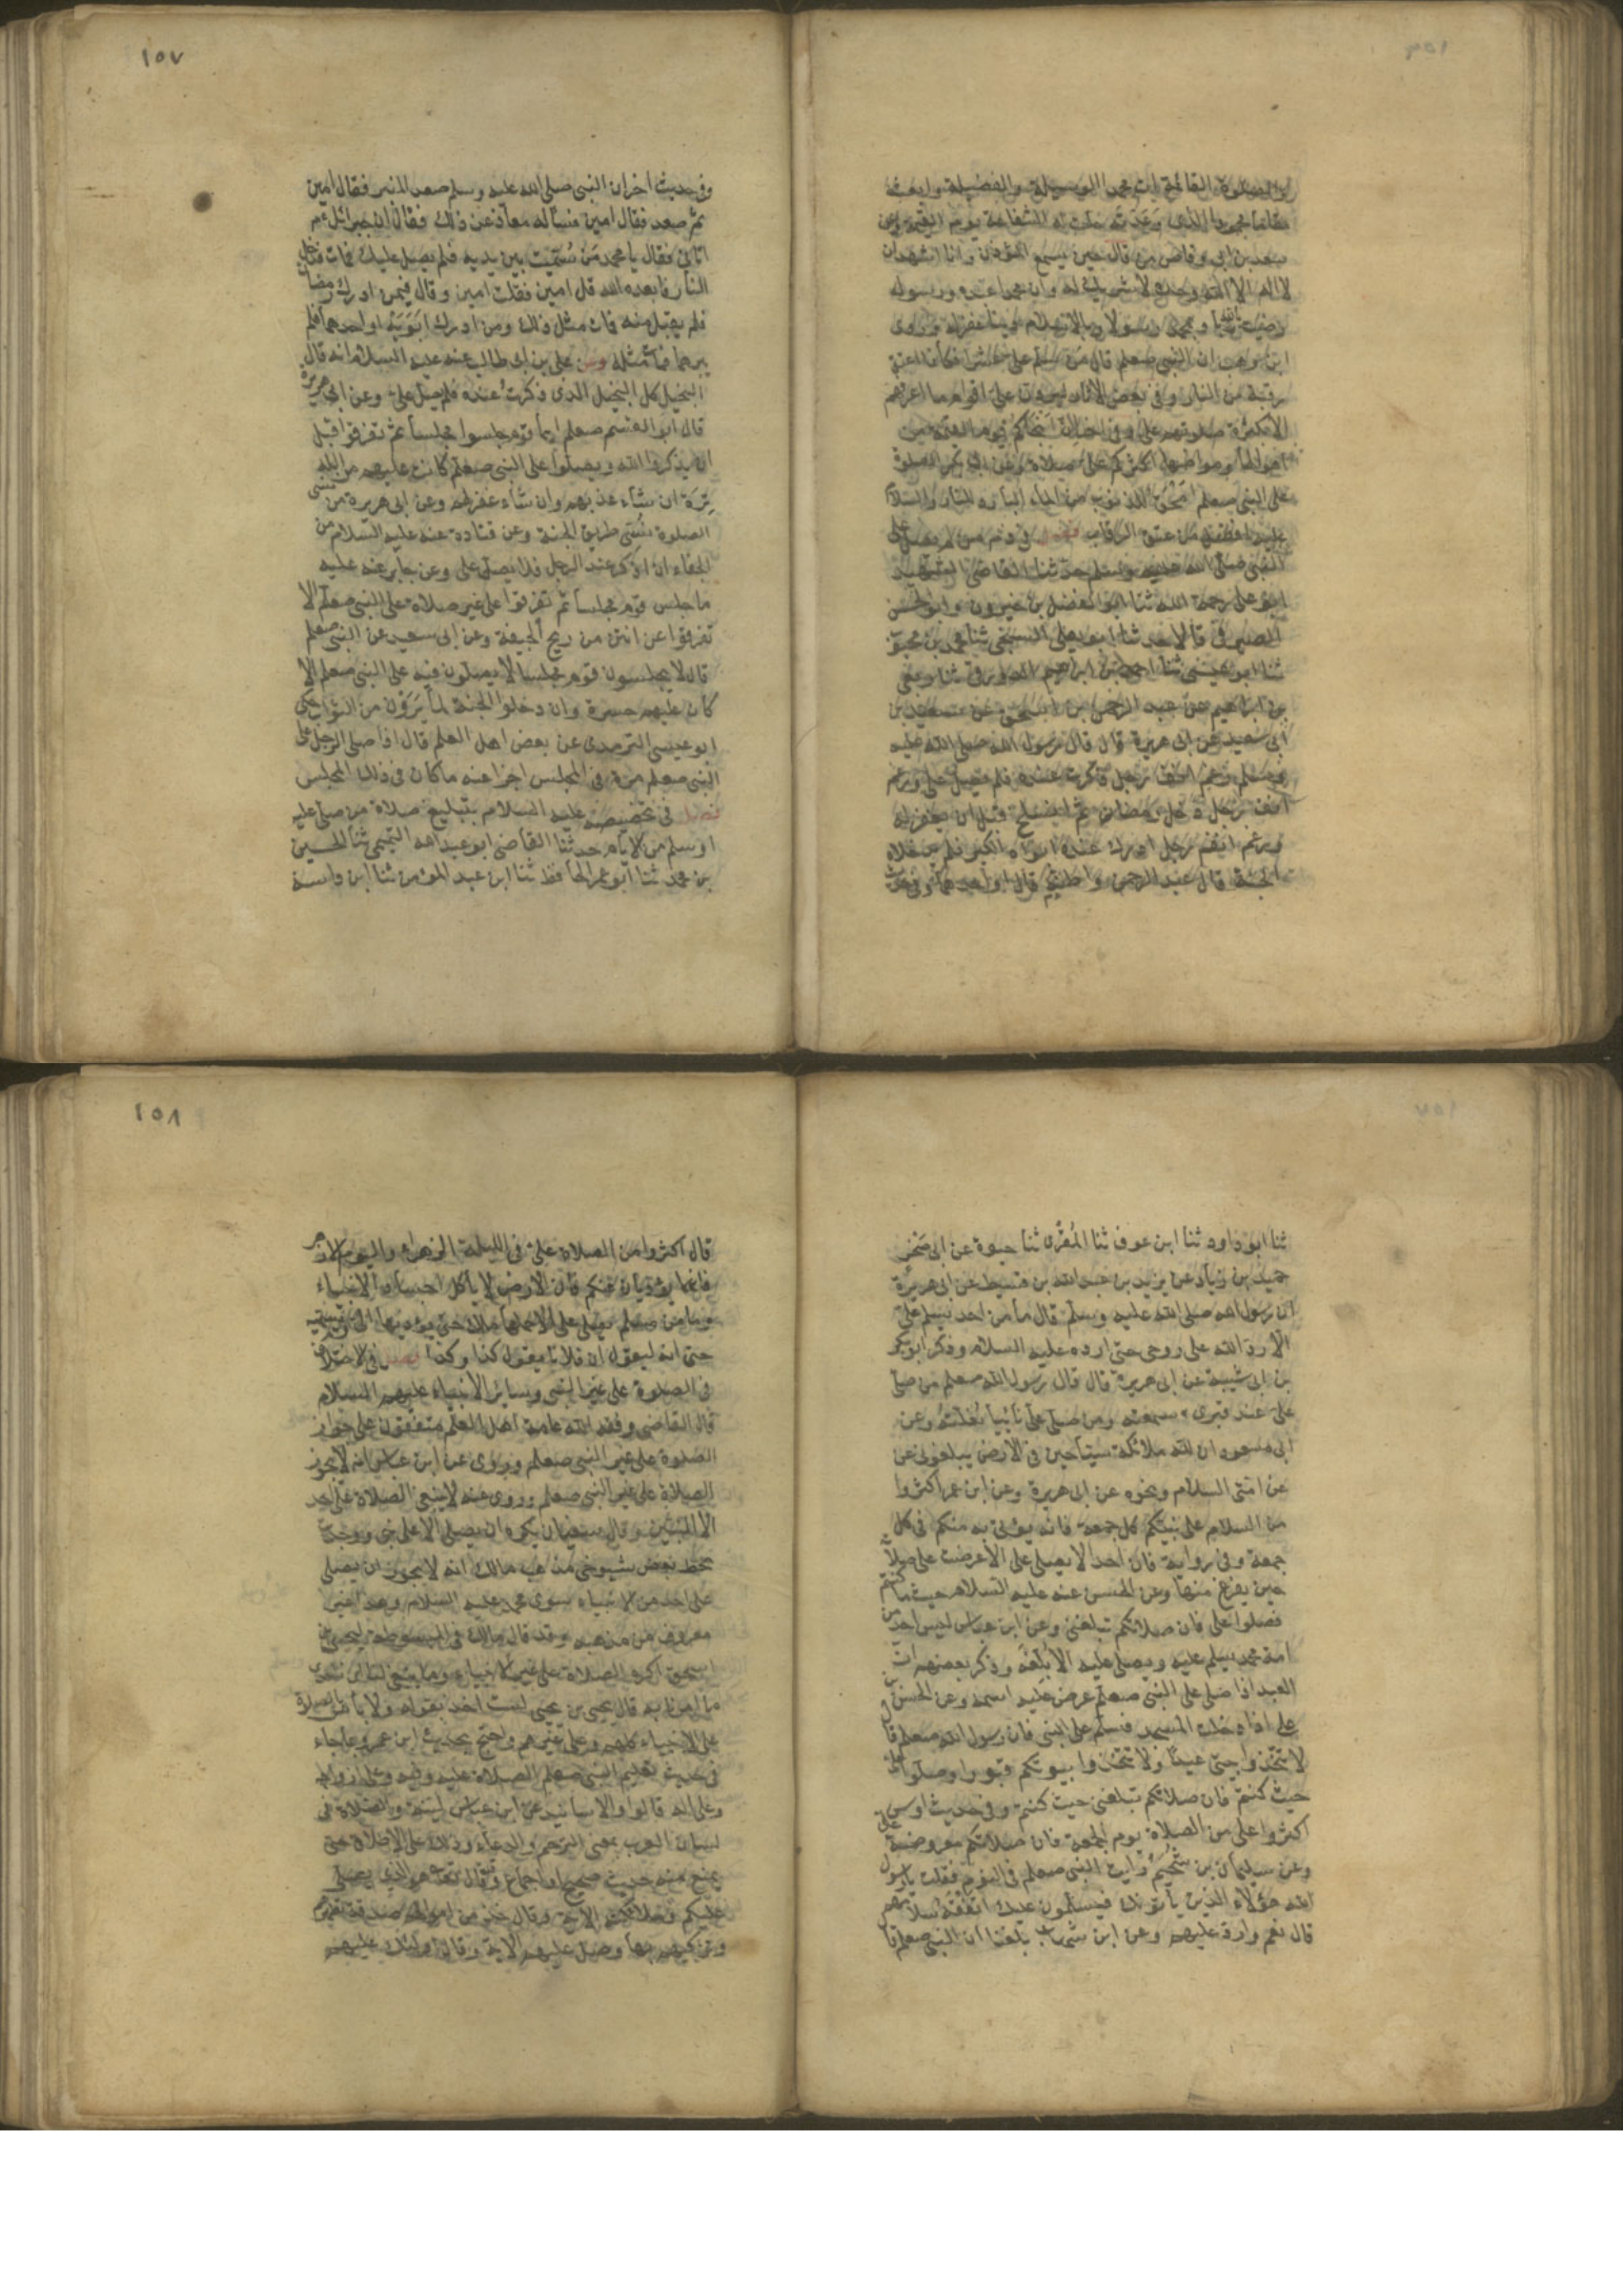 والصلوة القائمة ات محمدا الوسيلة والفضيلة وابعثه
مقاما محمودا الذى وعدته حلت له الشفاعة يوم القيمة وعن
سعد بن ابى وقاص من قال حين يسمع المؤذن وانا اشهد ان
لا اله الا الله وحده لا شريك له وان محمدا عبده ورسوله
رضيت بالله ربا وبمحمد رسولا وبالاسلام دينا غفر له وروى
ابن وهب ان النبى صعلم قال من سلم على عشرا فكأنما اعتق
رقبة وفى بعض الاثار ليردن على اقوام ما اعرفهم
الا بكثرة صلوتهم على وفى اخر ان انجاكم يوم القيمة من
اهوالها ومواطنها اكثركم على صلاة وعن ابى بكر الصلوة
على النبى صعلم امحق للذنوب من الماء البارد للنار والسلام
عليه افضل من عتق الرقاب فصل فى ذم من لم يصل على
النبى صلى الله عليه وسلم حدثنا القاضى الشهيد
ابو على رحمه الله ثنا ابو الفضل بن خيرون وابو الحسن
الصيرفى قالا حدثنا ابو يعلى السنجى ثنا محمد بن محبوب
ثنا ابو عيسى ثنا احمد بن ابراهيم الدورقى ثنا ربعى
بن ابراهيم عن عبد الرحمن بن اسحق عن سعيد بن
ابى سعيد عن ابى هريرة قال قال رسول الله صلى الله عليه
وسلم رغم انف رجل ذكرت عنده فلم يصل على ورغم
انف رجل دخل رمضان ثم انسلخ قبل ان يغفر له
ورغم انف رجل ادرك عنده ابواه الكبر فلم يدخلاه
الجنة قال عبد الرحمن واظنه قال او احدهما وفى حديث
١٥٧
وفى حديث اخر ان النبى صلى الله عليه وسلم صعد المنبر فقال امين
ثم صعد فقال امين فسأله معاذ عن ذلك فقال ان جبرائل عم
اتانى فقال يا محمد من سميت بين يديه فلم يصل عليك فمات فدخل
النار فابعده الله قل امين فقلت امين وقال فيمن ادرك رمضان
فلم يقبل منه فمات مثل ذلك ومن ادرك ابويه او احدهما فلم
يبرهما فمات مثله وعن على بن ابى طالب عنه عليه السلام انه قال
البخيل كل البخيل الذى ذكرت عنده فلم يصل على وعن ابى هريرة
قال ابو القسم صعلم ايما قوم جلسوا مجلسا ثم تفرقوا قبل
ان يذكروا الله ويصلوا على النبى صعلم كانت عليهم من الله
ترة ان شاء عذبهم وان شاء غفر لهم وعن ابى هريرة من نسى
الصلوة نسى طريق الجنة وعن قتادة عنه عليه السلام من
الجفاء ان اذكر عند الرجل فلا يصلى على وعن جابر عنه عليه
ما جلس قوم مجلسا ثم تفرقوا على غير صلاة على النبى صعلم الا
تفرقوا عن انتن من ريح الجيفة وعن ابى سعيد عن النبى صعلم
قال لا يجلسون قوم مجلسا لا يصلون فيه على النبى صعلم الا
كان عليهم حسرة وان دخلوا الجنة لما يرون من الثواب حكى
ابو عيسى الترمذى عن بعض اهل العلم قال اذا صلى الرجل على
النبى صعلم مرة فى المجلس اجزا عنه ما كان فى ذلك المجلس
فصل فى تخصيصه عليه السلام بتبليغ صلاة من صلى عليه
او سلم من الانام حدثنا القاضى ابو عبد الله التميمى ثنا الحسين
بن محمد ثنا ابو عمر الحافظ ثنا ابن عبد المؤمن ثنا ابن داسة
ثنا ابو داود ثنا ابن عوف ثنا المقرى ثنا حيوة عن ابى صخر
حميد بن زياد عن يزيد بن عبد الله بن قسيط عن ابى هريرة
ان رسول الله صلى الله عليه وسلم قال ما من احد يسلم على
الا رد الله على روحى حتى ارد عليه السلام وذكر ابو بكر
بن ابى شيبة عن ابى هريرة قال قال رسول الله صعلم من صلى
على عند قبرى سمعته ومن صلى على نائيا بلغته وعن
ابن مسعود ان لله ملائكة سياحين فى الارض يبلغونى عن
عن امتى السلام ونحوه عن ابى هريرة وعن ابن عمر اكثروا
من السلام على نبيكم كل جمعة فانه يؤتى به منكم فى كل
جمعة وفى رواية فان احدا لا يصلى على الا عرضت على صلاته
حين يفرغ منها وعن الحسن عنه عليه السلام حيث ما كنتم
فصلوا على فان صلاتكم تبلغنى وعن ابن عباس ليس احد من
امة محمد يسلم عليه ويصلى عليه الا بلغه وذكر بعضهم ان
العبد اذا صلى على النبى صعلم عرض عليه اسمه وعن الحسن بن
على اذا دخلت المسجد فسلم على النبى فان رسول الله صعلم قال
لا تتخذوا بيتى عيدا ولا تتخذوا بيوتكم قبورا وصلوا على
حيث كنتم فان صلاتكم تبلغنى حيث كنتم وفى حديث اوس
اكثروا على من الصلاة يوم الجمعة فان صلاتكم معروضة على
وعن سليمان بن سحيم رايت النبى صعلم فى النوم فقلت يا رسول
الله هؤلاء الذين يأتونك فيسلمون عليك اتفقه سلامهم
قال نعم وارد عليهم وعن ابن شهاب بلغنا ان النبى صعلم قا
١٥٨
قال اكثروا من الصلاة على فى الليلة الزهراء واليوم الازهر
فانهما يؤديان عنكم فان الارض لا يأكل اجساد الانبياء
وما من مسلم يصلى على الا حملها ملك حتى يؤديها الى ويسميه
حتى انه ليقول ان فلانا يقول كذا وكذا فصل فى الاختلاف
فى الصلوة على غير النبى وسائر الانبياء عليهم السلام
قال القاضى وفقه الله عامة اهل العلم متفقون على جواز
الصلوة على غير النبى صعلم وروى عن ابن عباس انه لا يجوز
الصلاة على غير النبى صعلم وروى عنه لا ينبغى الصلاة على احد
الا النبيين وقال سفيان يكره ان يصلى الا على نبى ووجدت
بخط بعض شيوخى مذهب مالك انه لا يجوز ان يصلى
على احد من الانبياء سوى محمد عليه السلام وهذا غير
معروف من مذهبه وقد قال مالك فى المبسوطة ليحيى بن
اسحق اكره الصلاة على غير الانبياء وما ينبغى لنا ان نتعدى
ما امرنا به قال يحيى بن يحيى لست اخذ بقوله ولا بأس بالصلاة
على الانبياء كلهم وعلى غيرهم واحتج بحديث ابن عمر وبما جاء
فى حديث تعليم النبى صعلم الصلاة عليه وفيه وعلى ازواجه
وعلى اله قالوا والاسانيد عن ابن عباس لينة والصلاة فى
لسان العرب بمعنى الترحم والدعاء وذلك على الاطلاق حتى
يمنع منه حديث صحيح او اجماع وقد قال تعالى هو الذى يصلى
عليكم وملائكته الاية وقال خذ من اموالهم صدقة تطهرهم
وتزكيهم بها وصل عليهم الاية وقال اولئك عليهم